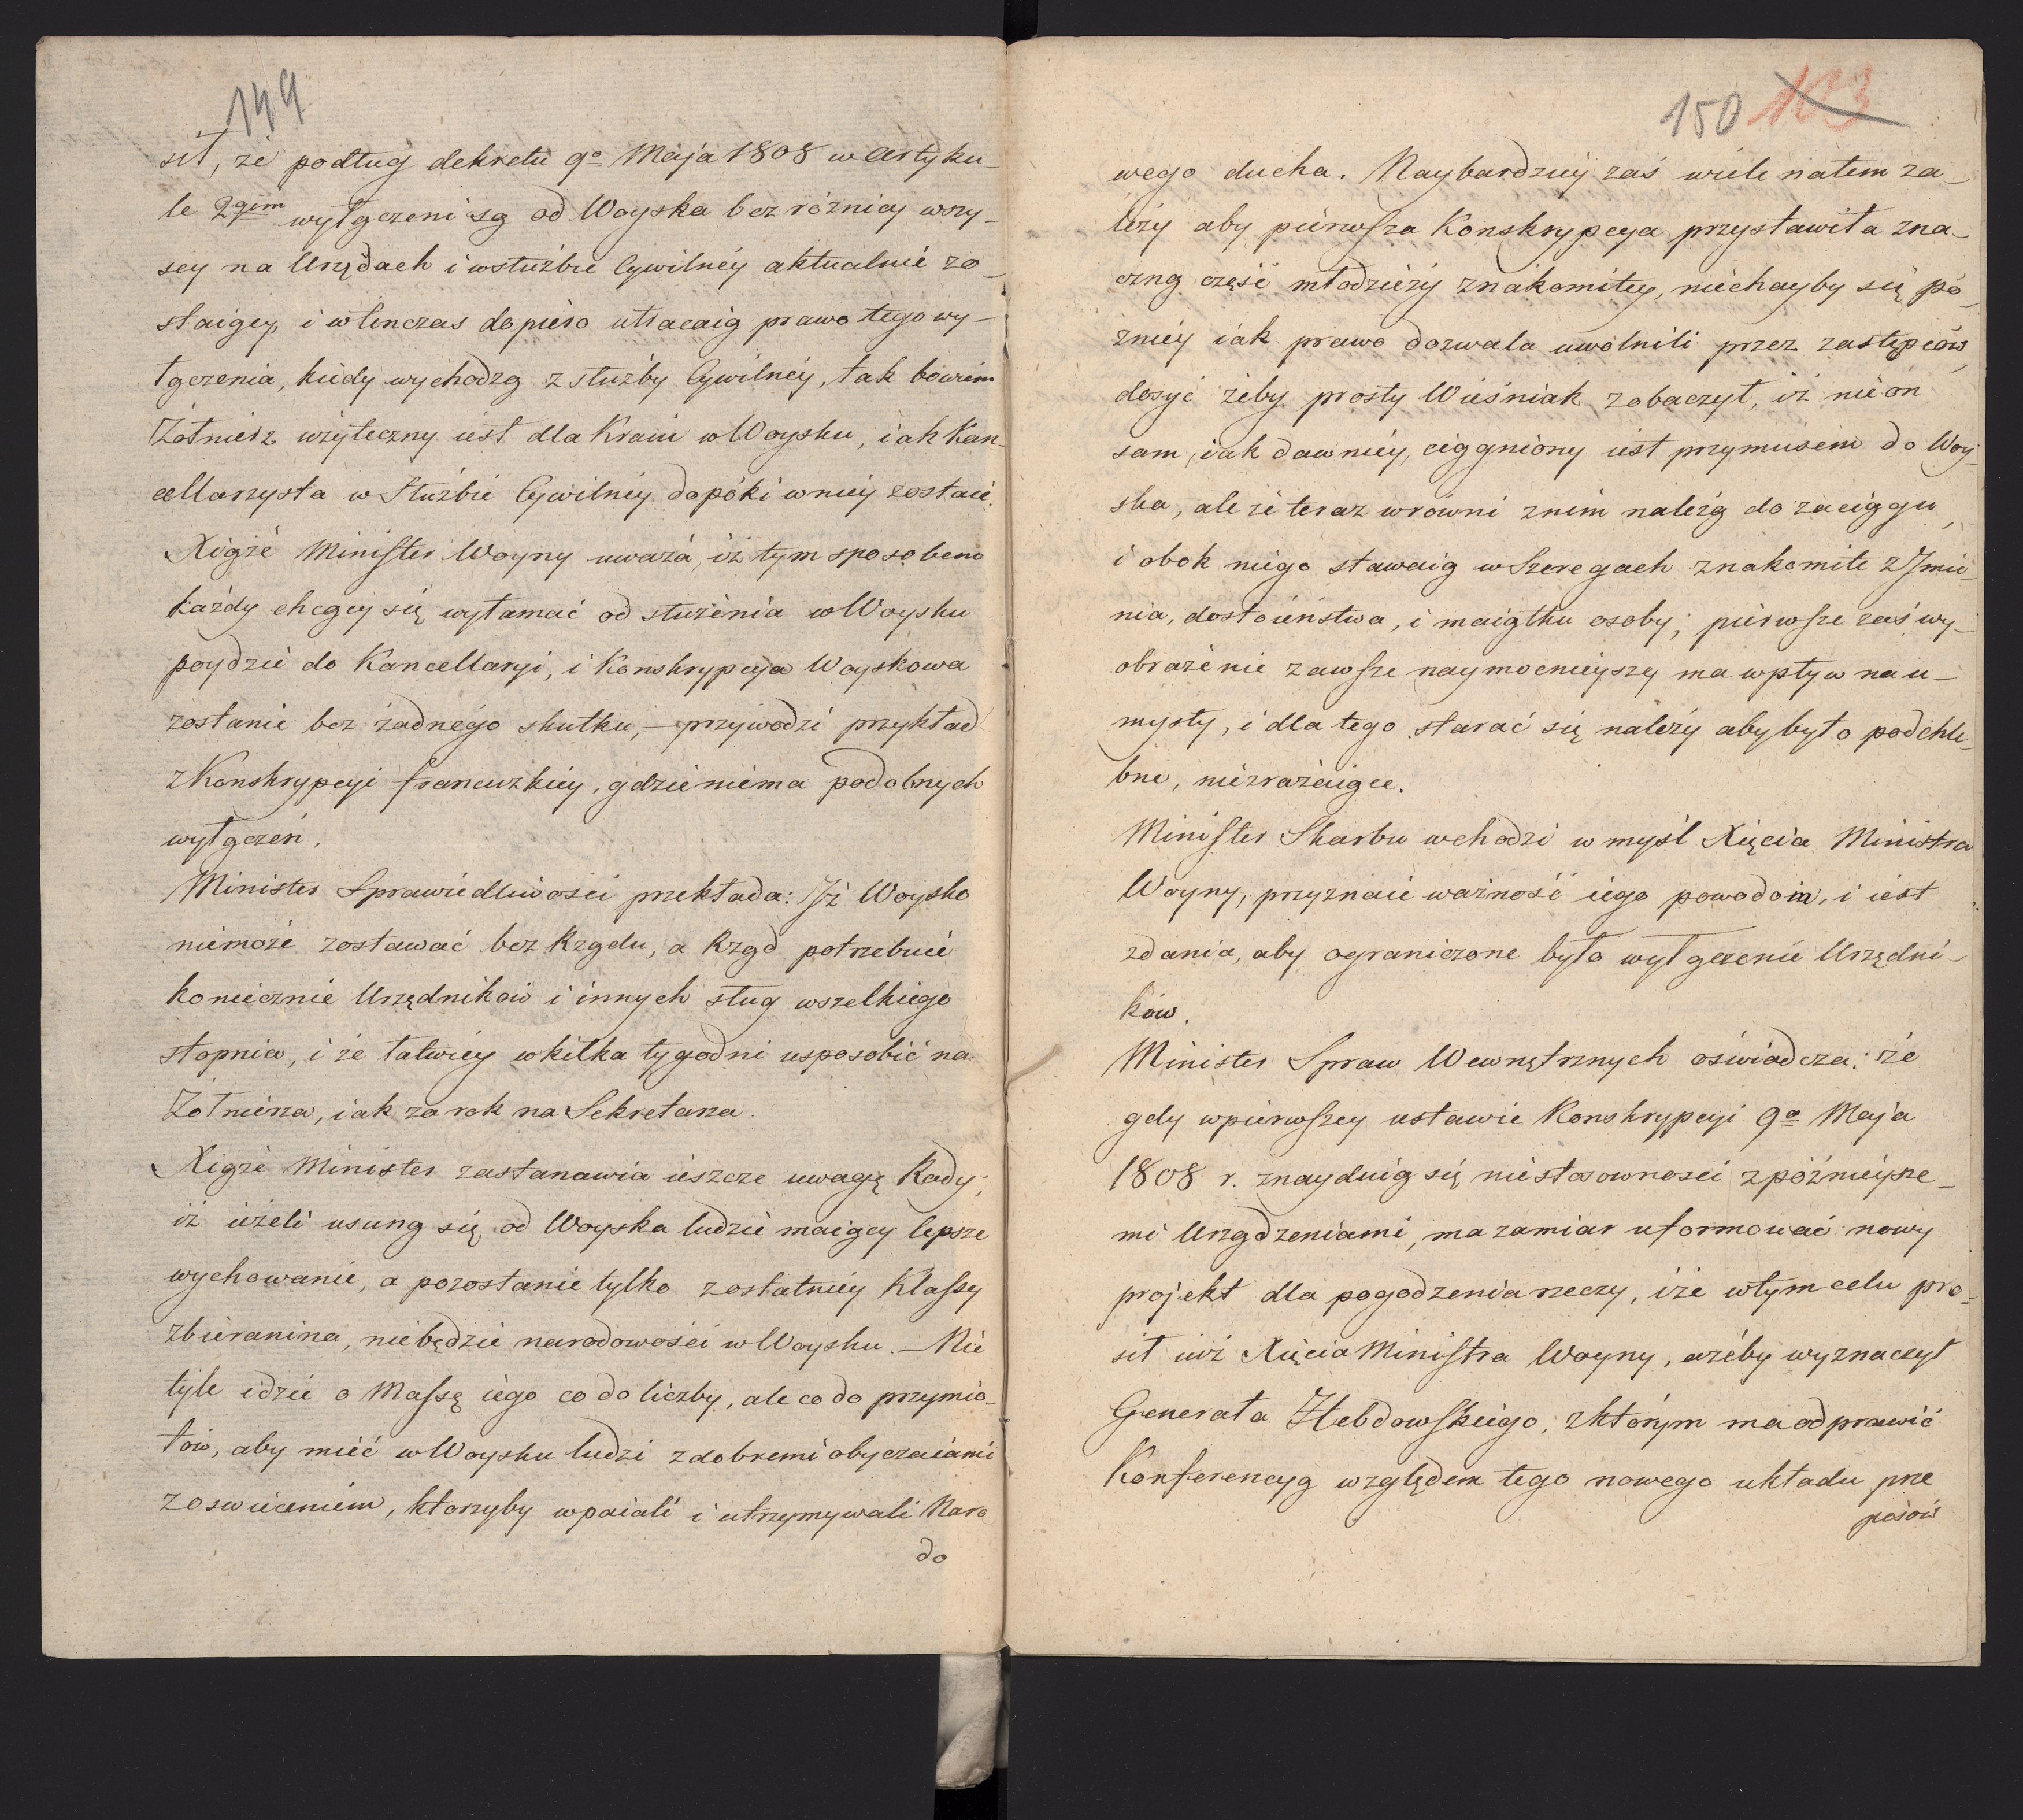 149
sił, że podług dekretu 9º Maja 1808 w Artyku-
le 2gim wyłączeni są od Woyska bez różnicy wszy-
scy na Urzędach i w służbie Cywilnéy aktualnie zo-
staiący, i wtenczas dopiero utracaią prawo tego wy-
łączenia, kiedy wychodzą z służby Cywilnéy, tak bowiem
Żołnierz użyteczny iest dla Kraiu w Woysku, iak Kan-
cellarzysta w Służbie Cywilnéy dopóki w niey zostaie.
Xiąże Minister Woyny uważa, iż tym sposobem
każdy chcący się wyłamać od służenia w Woysku
poydzie do Kancellaryi, i Konskrypcya Woyskowa
zostanie bez żadnego skutku, – przywodzi przykład
z Konskrypcyi francuzkiey, gdzie niema podobnych
wyłączeń.
Minister Sprawiedliwości przekłada: Iż Woysko
niemoże zostawać bez Rządu, a Rząd potrzebuie
koniecznie Urzędników i innych sług wszelkiego
stopnia, i że łatwiey w kilka tygodni usposobić na
Żołnierza, iak za rok na Sekretarza.
Xiąże Minister zastanawia ieszcze uwagę Rady,
iż ieżeli usuną się od Woyska ludzie maiący lepsze
wychowanie, a pozostanie tylko z ostatniey Klassy
zbieranina, niebędzie narodowości w Woysku. – Nie
tyle idzie o Massę iego co do liczby, ale co do przymio-
tów, aby mieć w Woysku ludzi z dobremi obyczaiami
z oswieceniem, ktorzyby wpaiali i utrzymywali Naro
do
150 103
wego ducha. Naybardziey zaś wiele natem za-
leży aby pierwsza Konskrypcya przystawiła zna-
czną część młodzieży znakomitey, niechayby się pó-
zniey iak prawo dozwala uwolnili przez zastępców,
dosyć żeby prosty Wieśniak zobaczył, iż nie on
sam, iak dawniey, ciągniony iest przymusem do Woy-
ska, ale że teraz wrówni z nim należą do zaciągu,
i obok niego stawaią w Szeregach znakomite z Imie-
nia, dostoieństwa, i maiątku osoby; pierwsze zaś wy-
obrażenie zawsze naymocnieyszy ma wpływ na u-
mysły, i dla tego starać się należy aby było podchle-
bne, niezrażaiące.
Minister Skarbu wchodzi w myśl Xięcia Ministra
Woyny, przyznaie ważność iego powodom, i iest
zdania, aby ograniczone było wyłączenie Urzędni-
ków.
Minister Spraw Wewnętrznych oświadcza: że
gdy w pierwszey ustawie Konskrypcyi 9º Maja
1808 r. znayduią się niestosownosci z późnieysze-
mi Urządzeniami, ma zamiar uformować nowy
projekt dla pogodzenia rzeczy, i że w tym celu pro-
sił iuż Xięcia Ministra Woyny, ażeby wyznaczył
Generała Hebdowskiego, z którym ma odprawić
Konferencyą względem tego nowego układu prze
pisów